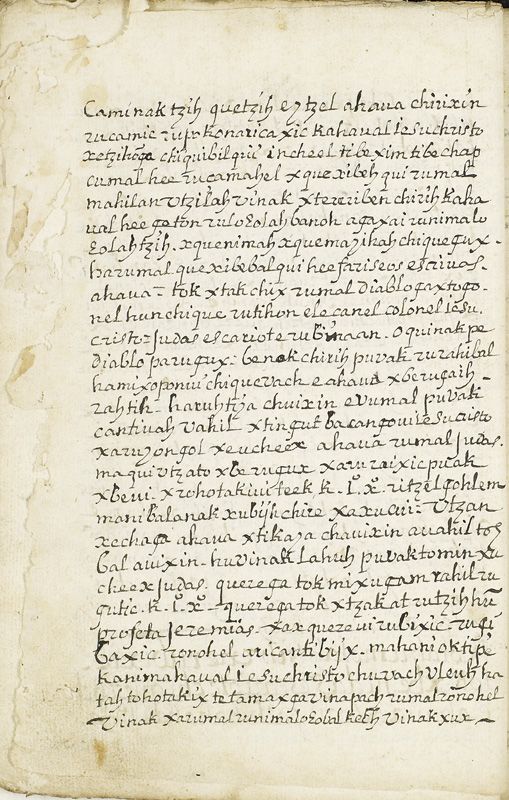 Caminak tzih quetzih eytzel ahaua chirixin
rucamic ruprkonarica xic kahaual Iesuchristo
xetzihoga chiquibil qui incheel tibexim tibechap
cumal hee rucamahel xquexibeh qui rumal
mahilan vtzilah vinak xtereriben chirih kaha
ual hee geton rulo Eolah banoh agaxai runimalo
Eolah tzih. xquenimah xquemayihah chiquegux.
harumal quexibebal qui hee fariseos escriuas.
ahaua - tok xtak chix rumal Diablo gaxtogo-
nel hun chique rutihon elecanel colonel Iesu.
cristo - Judas escariote rubinaan. oquinak pe
Diablo parugux: benak chirih puvak. rurahibal
hamixoponiu chiquevach e ahaua xberugaih
rahtih - haruhtiya chuixin evumal puvak
cantiuah vahil xtingut baxangoui Iesucristo
xaruyongol xeucheex ahaua rumal Judas.
maquivtzato xberugux xaru raixic puak
xbevi. xrohotakiui teek k. I. x. ritzelgohlem
manibalanak xubijh chire xaxucui. vtzan
xechaga ahaua xtikaya chauixin auahil toh
bal auixin - huvinak lahuh puvak tomin xu
cheex Judas. querega tok mixugam rahil ru
gutic. k. I. x. - querega tok xtzakat rutzih hu
profeta Jeremias. xax querevi rubixic. rugi
baxic. ronohel aricanti bijx. mahaniok tipe
kanimahaual Iesuchristo chuvach vleuh ha
tah tohotakix tetamaxga vinapach rumal ronohel
vinak xarumal runimalo Eobal keeh vinak xux -